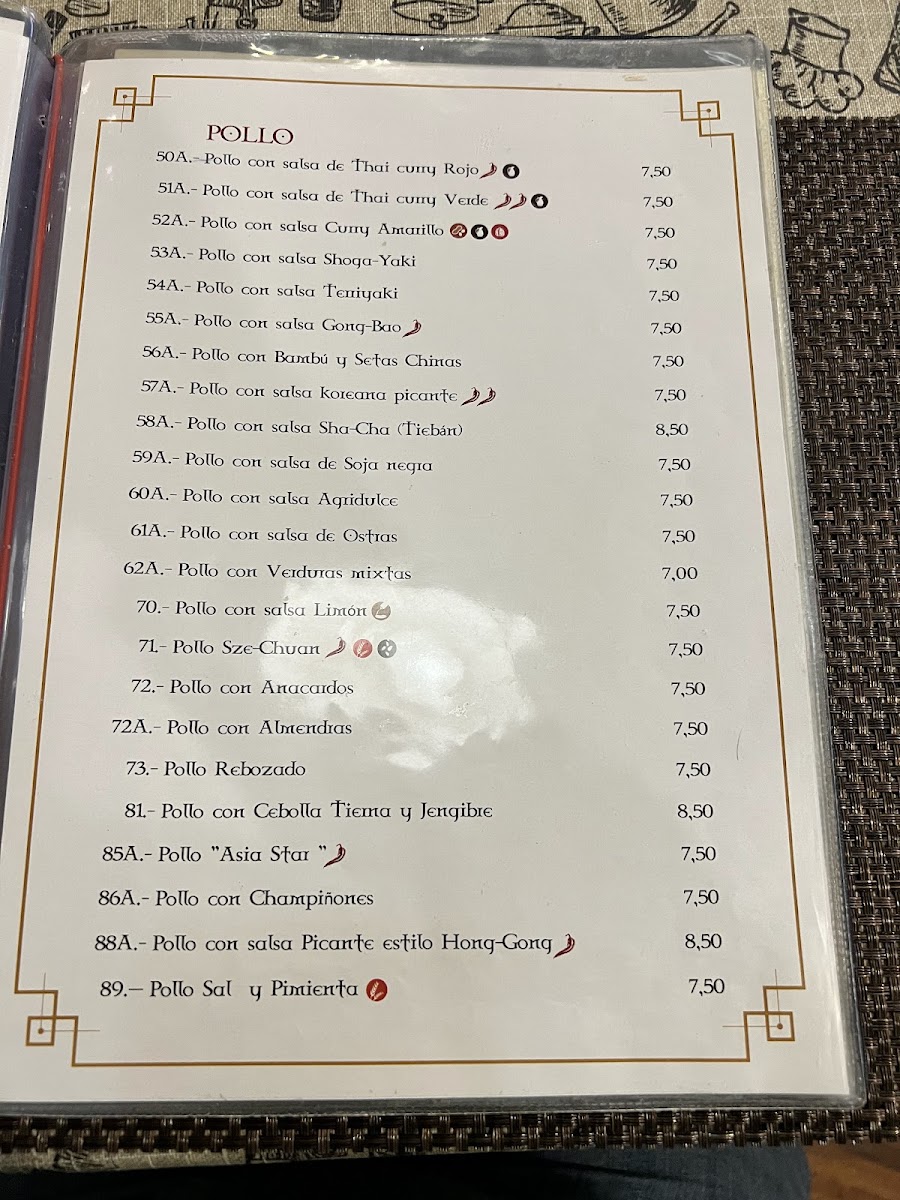 POLLO
50A.- Pollo con salsa de Thai curry Rojo 7,50
51A.- Pollo con salsa de Thai curry Verde 7,50
52A.- Pollo con salsa Curry Amarillo 7,50
53A.- Pollo con salsa Shoga-Yaki 7,50
54A.- Pollo con salsa Terriyaki 7,50
55A.- Pollo con salsa Gong-Bao 7,50
56A.- Pollo con Bambú y Setas Chinas 7,50
57A.- Pollo con salsa koreana picante 7,50
58A.- Pollo con salsa Sha-Cha (Tiebán) 8,50
59A.- Pollo con salsa de Soja negra 7,50
60A.- Pollo con salsa Agridulce 7,50
61A.- Pollo con salsa de Ostras 7,50
62A.- Pollo con Verduras mixtas 7,00
70.- Pollo con salsa Limón 7,50
71.- Pollo Sze-Chuan 7,50
72.- Pollo con Anacardos 7,50
72A.- Pollo con Almendras 7,50
73.- Pollo Rebozado 7,50
81.- Pollo con Cebolla Tierna y Jengibre 8,50
85A.- Pollo "Asia Star " 7,50
86A.- Pollo con Champiñones 7,50
88A.- Pollo con salsa Picante estilo Hong-Gong 8,50
89.— Pollo Sal y Pimienta 7,50